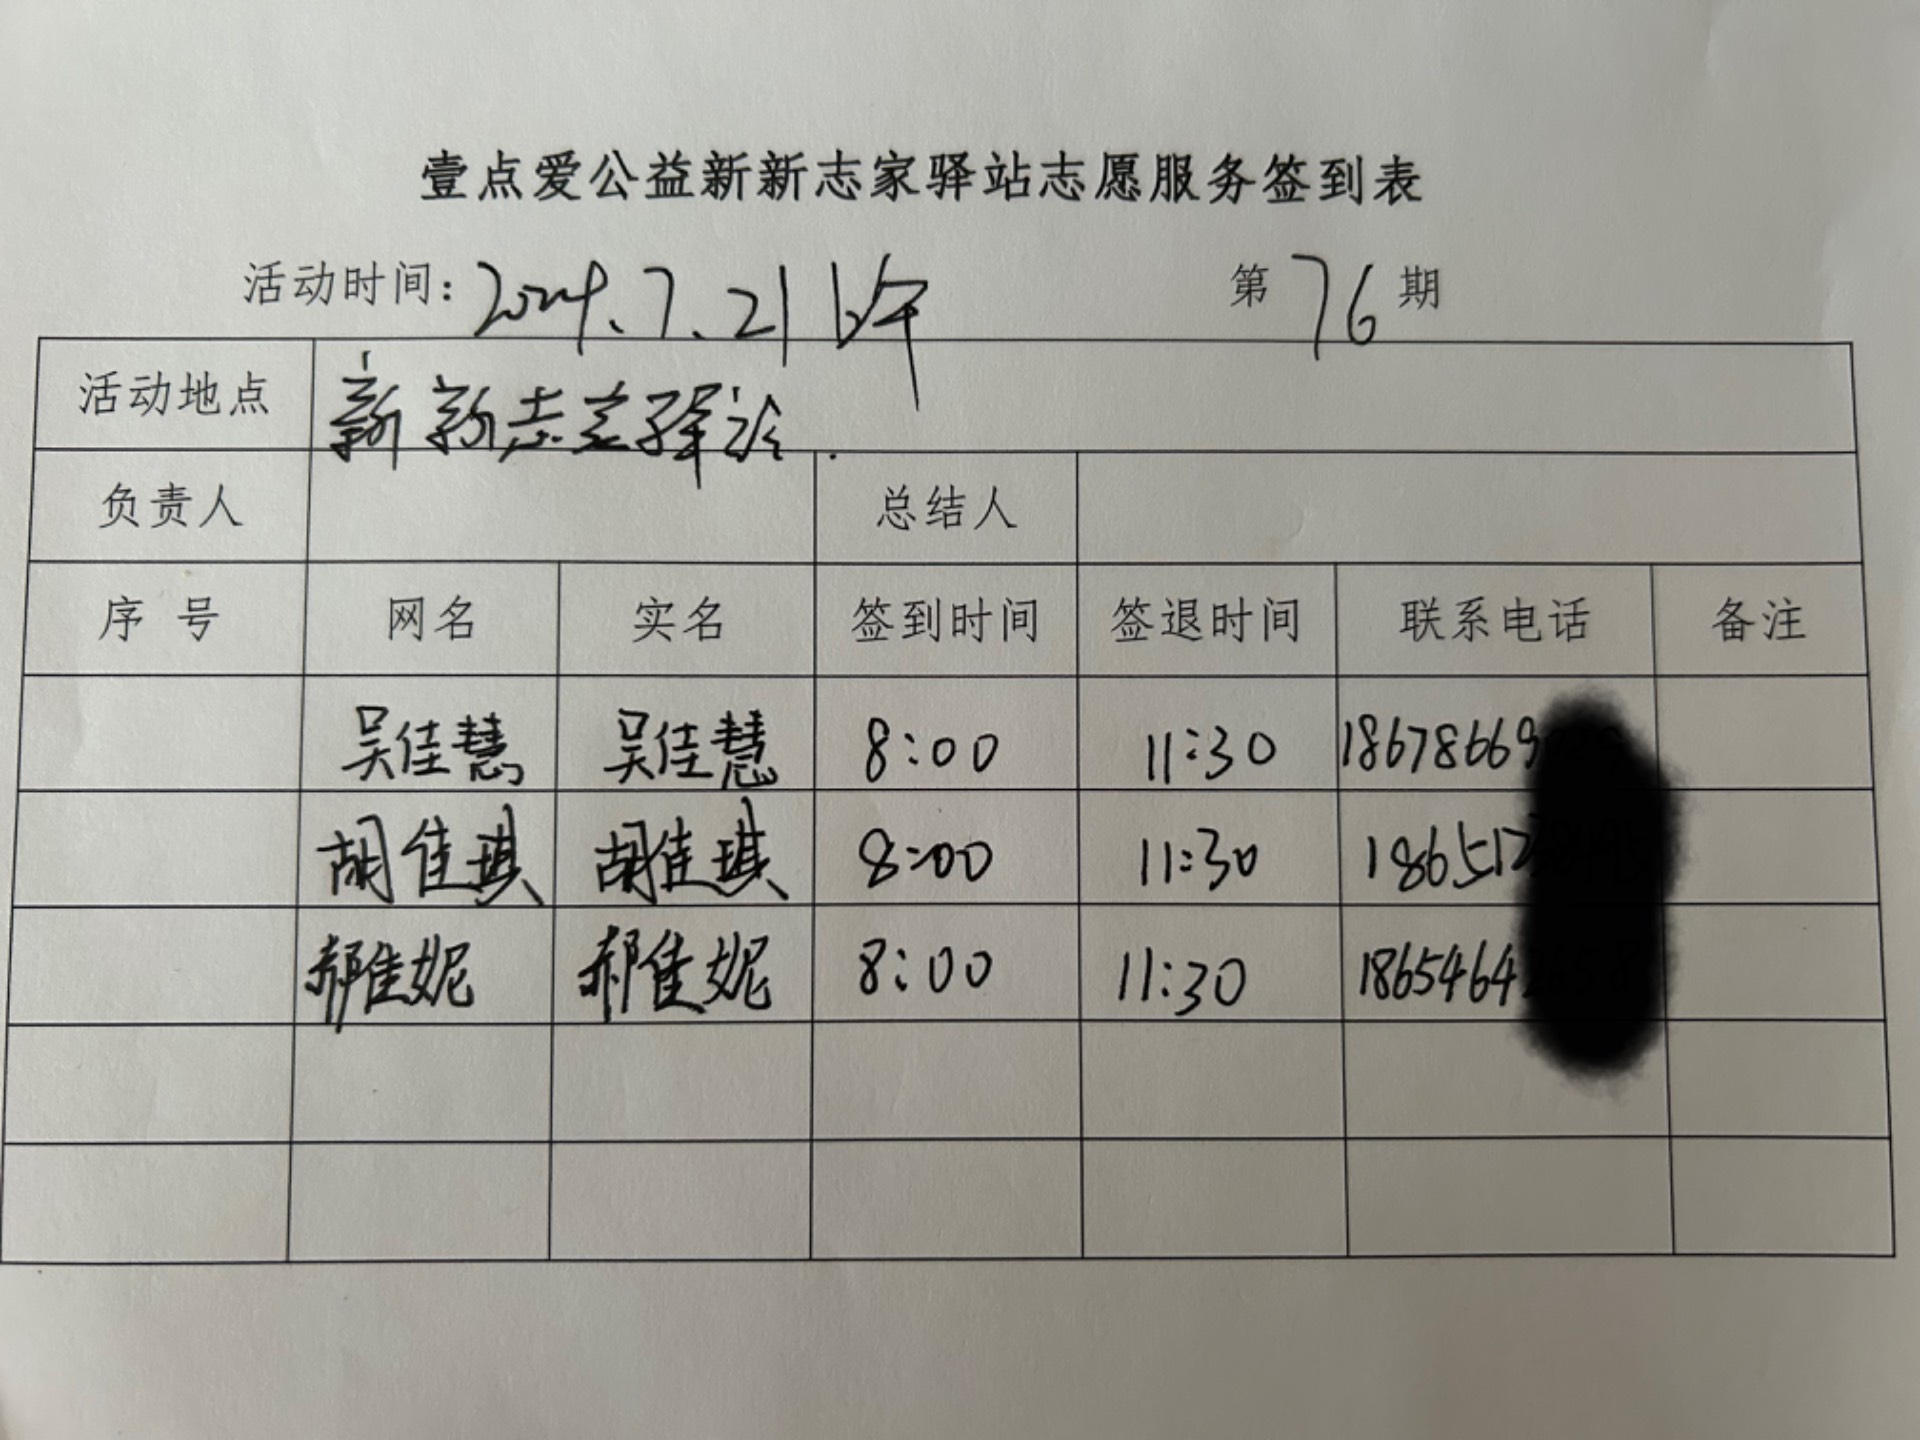 壹点爱公益新新志家驿站志愿服务签到表
活动时间: 2024.7.21 上午 第 76 期
活动地点 新新志家驿站.
负责人 总结人
序号 网名 实名 签到时间 签退时间 联系电话 备注
吴佳慧 吴佳慧 8:00 11:30 18678669
胡佳琪 胡佳琪 8:00 11:30 1865127
郝佳妮 郝佳妮 8:00 11:30 18654642